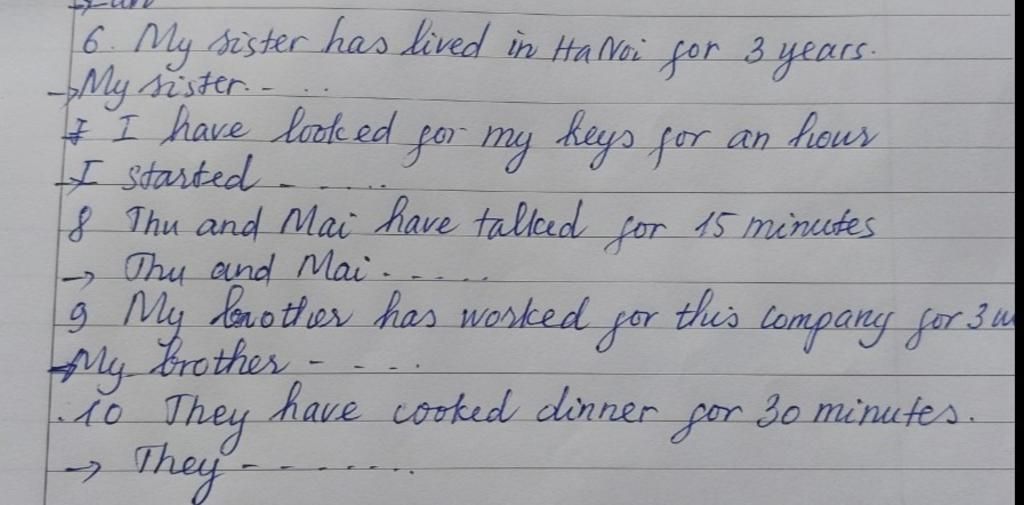 6. My sister has lived in Ha Noi for 3 years.
→ My sister. - . . .
7 I have looked for my keys for an hour
→ I started - . . . . .
8 Thu and Mai have talked for 15 minutes
→ Thu and Mai . - . . . .
9 My brother has worked for this company for 3
→ My brother - - - . .
.10 They have cooked dinner for 30 minutes.
→ They - - - - - . . .